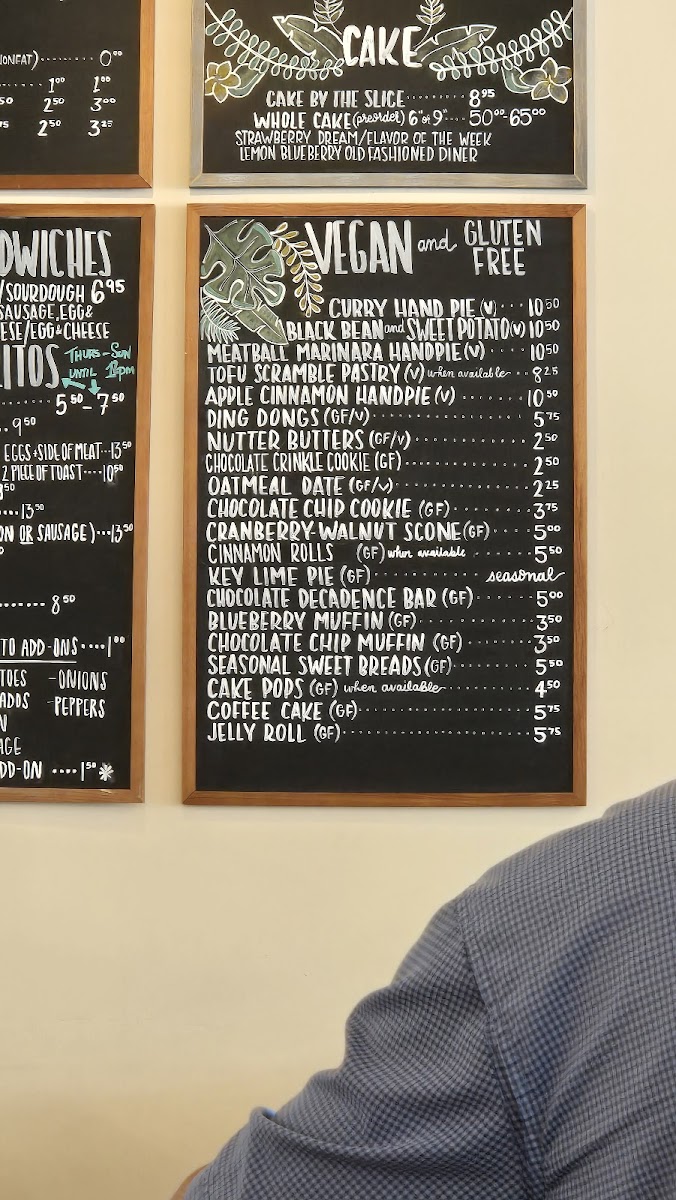 ONFAT) 0⁰⁰
1⁰⁰ 1⁰⁰
50 2⁵⁰ 3⁰⁰
75 2⁵⁰ 3²⁵
CAKE
CAKE BY THE SLICE 8⁹⁵
WHOLE CAKE (preorder) 6" or 9" 50⁰⁰-65⁰⁰
STRAWBERRY DREAM/FLAVOR OF THE WEEK
LEMON BLUEBERRY OLD FASHIONED DINER
DWICHES
/SOURDOUGH 6⁹⁵
SAUSAGE, EGG &
ESE/EGG & CHEESE
ITOS THURS-SUN
UNTIL
5⁵⁰-7⁵⁰
9⁵⁰
EGGS + SIDE OF MEAT 13⁵⁰
2 PIECE OF TOAST 10⁵⁰
8⁵⁰
13⁵⁰
ON OR SAUSAGE) 13⁵⁰
8⁵⁰
TO ADD-ONS 1⁰⁰
TOES -ONIONS
ADDS -PEPPERS
N
AGE
DD-ON 1⁵⁰ *
VEGAN and GLUTEN
FREE
CURRY HAND PIE (V) 10⁵⁰
BLACK BEAN and SWEET POTATO (V) 10⁵⁰
MEATBALL MARINARA HANDPIE (V) 10⁵⁰
TOFU SCRAMBLE PASTRY (V) when available 8²⁵
APPLE CINNAMON HANDPIE (V) 10⁵⁰
DING DONGS (GF/V) 5⁷⁵
NUTTER BUTTERS (GF/V) 2⁵⁰
CHOCOLATE CRINKLE COOKIE (GF) 2⁵⁰
OATMEAL DATE (GF/V) 2²⁵
CHOCOLATE CHIP COOKIE (GF) 3⁷⁵
CRANBERRY-WALNUT SCONE (GF) 5⁰⁰
CINNAMON ROLLS (GF) when available 5⁵⁰
KEY LIME PIE (GF) seasonal
CHOCOLATE DECADENCE BAR (GF) 5⁰⁰
BLUEBERRY MUFFIN (GF) 3⁵⁰
CHOCOLATE CHIP MUFFIN (GF) 3⁵⁰
SEASONAL SWEET BREADS (GF) 5⁵⁰
CAKE POPS (GF) when available 4⁵⁰
COFFEE CAKE (GF) 5⁷⁵
JELLY ROLL (GF) 5⁷⁵